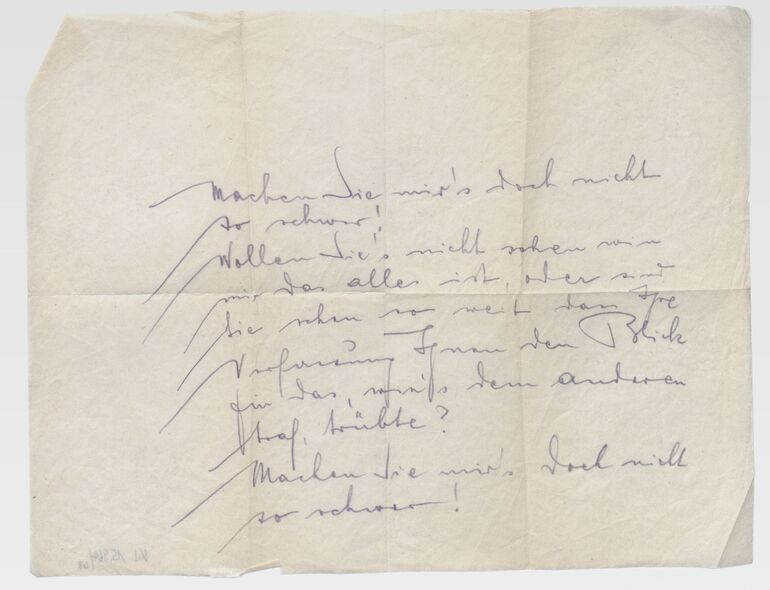 Machen Sie mir's doch nicht
so schwer!
Wollen Sie's nicht sehen wie
mir das alles ist, oder sind
Sie schon so weit dass Ihre
Verfassung Ihnen den Blick
für das, was dem anderen
traf, trübte?
Machen Sie mir's doch nicht
so schwer!